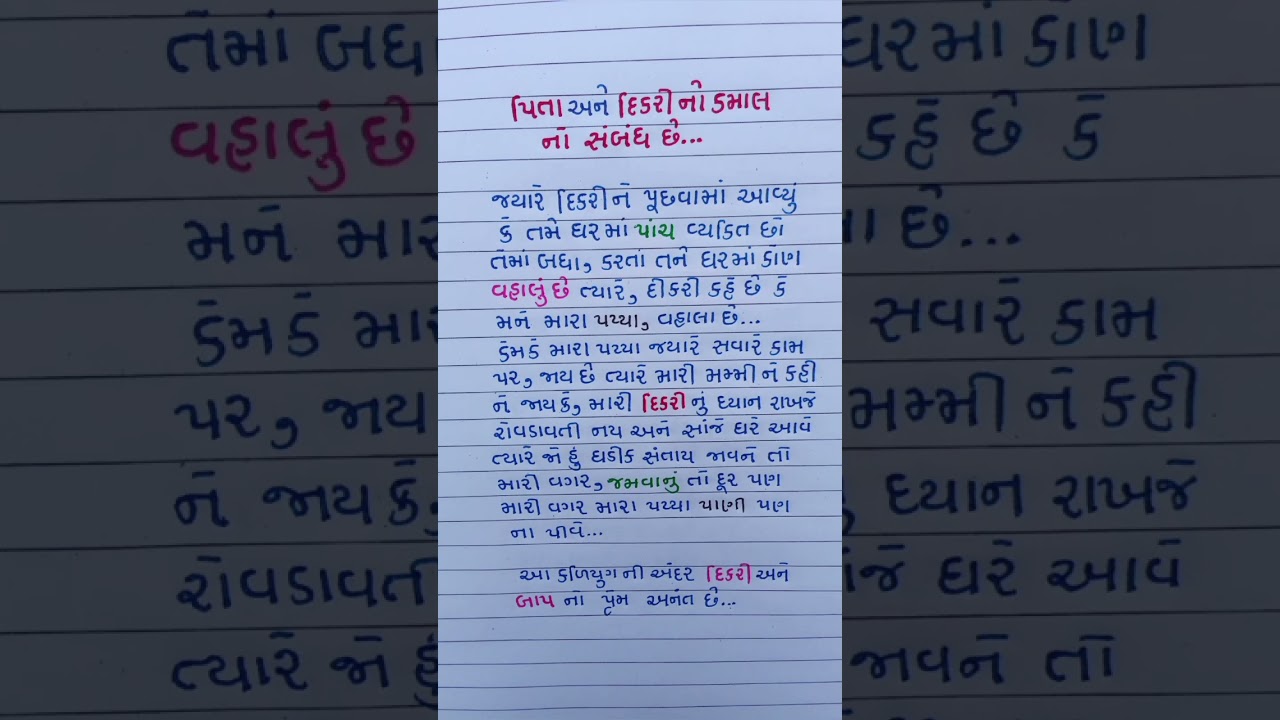 પિતા અને દિકરી નો કમાલ
નો સંબંધ છે...
જયારે દિકરીને પૂછવામાં આવ્યું
કે તમે ઘરમાં પાંચ વ્યકિત છો
તેમાં બધા, કરતાં તને ઘરમાં કોણ
વહાલું છે ત્યારે, દીકરી કહે છે કે
મને મારા પપ્પા, વહાલા છે...
કેમકે મારા પપ્પા જયારે સવારે કામ
પર, જાય છે ત્યારે મારી મમ્મી ને કહી
ને જાય કે, મારી દિકરી નું ધ્યાન રાખજે
રોવડાવતી નય અને સાંજે ઘરે આવે
ત્યારે જો હું ઘડીક સંતાય જાવને તો
મારી વગર, જમવાનું તો દૂર પણ
મારી વગર મારા પપ્પા પાણી પણ
ના પીવે...
આ કળિયુગ ની અંદર દિકરી અને
બાપ નો પ્રેમ અનંત છે...